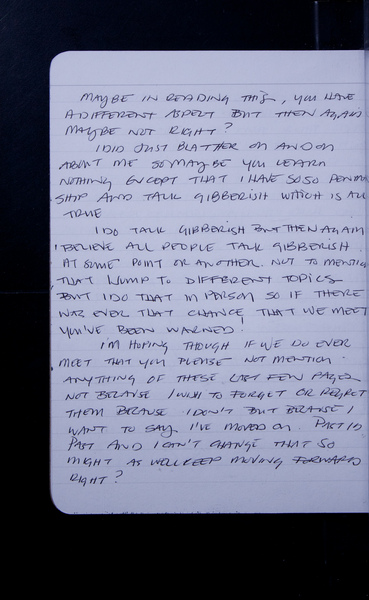 MAYBE IN READING THIS, YOU HAVE
A DIFFERENT ASPECT BUT THEN AGAIN
MAYBE NOT RIGHT?
I DID JUST BLATHER ON AND ON
ABOUT ME SO MAYBE YOU LEARN
NOTHING EXCEPT THAT I HAVE SO SO PENMAN
SHIP AND TALK GIBBERISH WHICH IS ALL
TRUE
I DO TALK GIBBERISH BUT THEN AGAIN
I BELIEVE ALL PEOPLE TALK GIBBERISH
AT SOME POINT OR ANOTHER. NOT TO MENTION
THAT I JUMP TO DIFFERENT TOPICS
BUT I DO THAT IN PERSON SO IF THERE
WAS EVER THAT CHANCE THAT WE MEET
YOU'VE BEEN WARNED!
I'M HOPING THOUGH IF WE DO EVER
MEET THAT YOU PLEASE NOT MENTION
ANYTHING OF THESE LAST FEW PAGES
NOT BECAUSE I WISH TO FORGET OR REGRET
THEM BECAUSE I DON'T BUT BECAUSE I
WANT TO SAY I'VE MOVED ON. PAST IS
PAST AND I CAN'T CHANGE THAT SO
MIGHT AS WELL KEEP MOVING FORWARD
RIGHT?